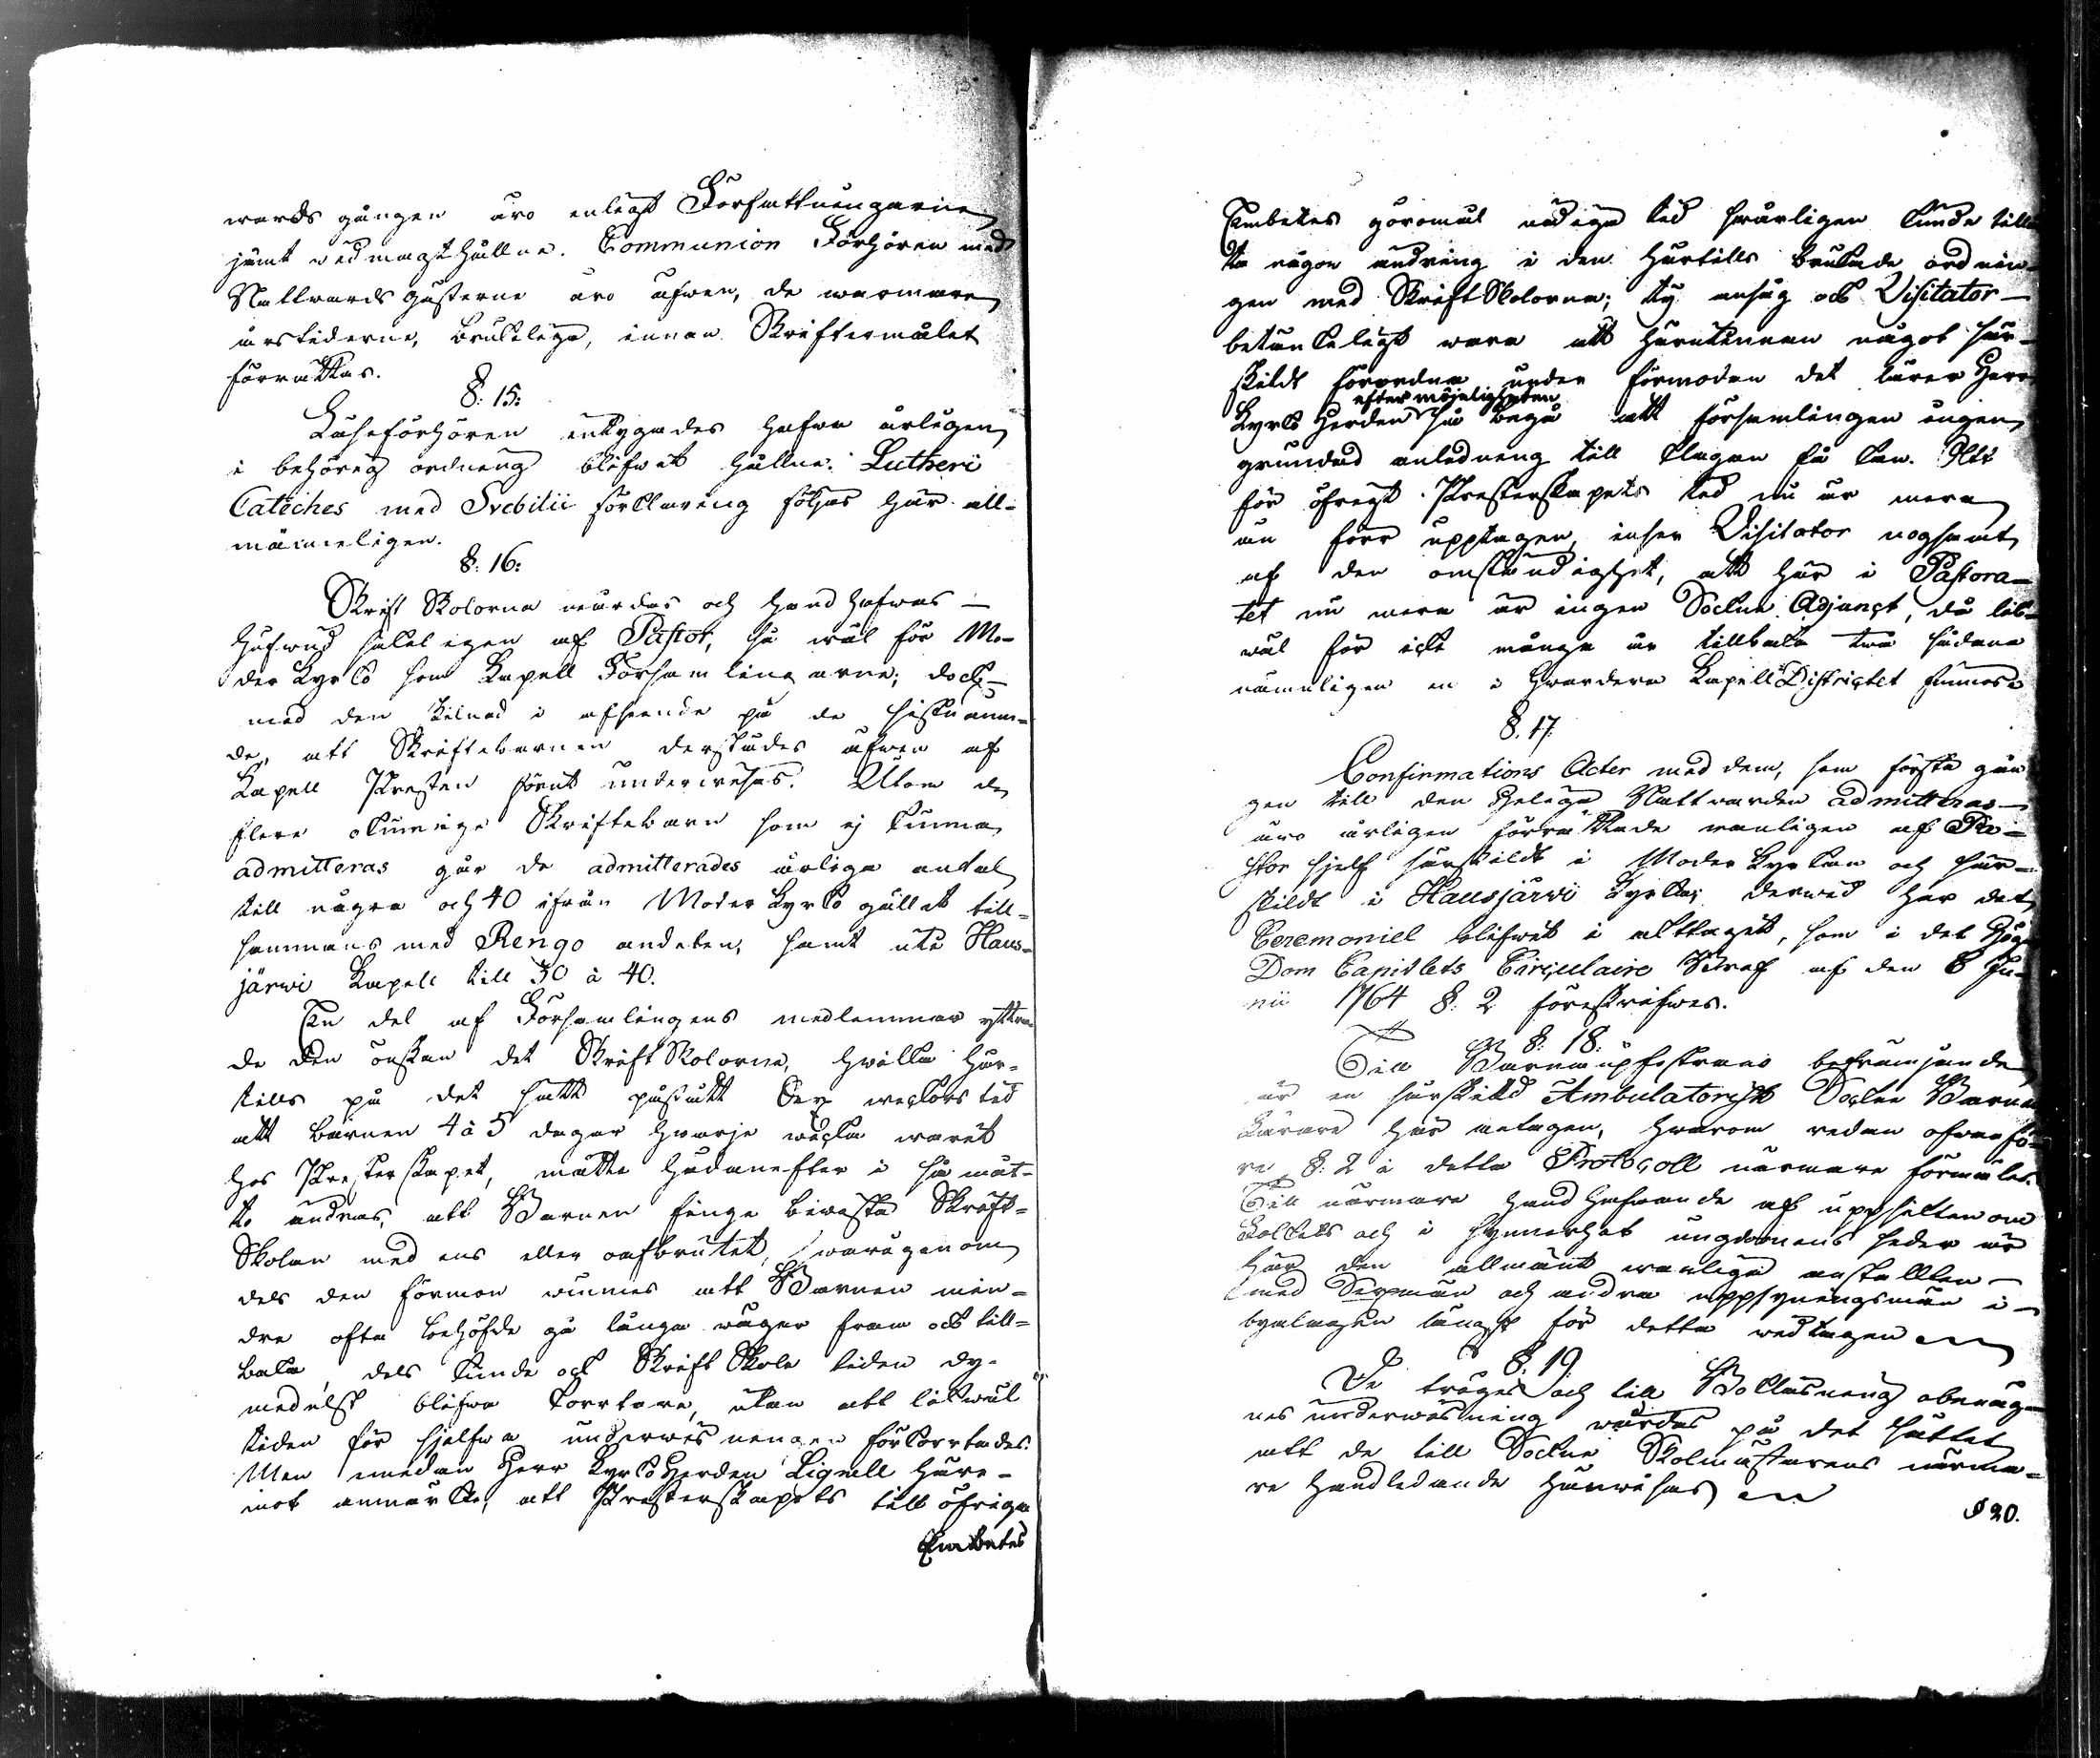 wards gången äro enligt Författningarne
jämt wedmagthållne. Communion Förhören med
Nattwards gästerne äro äfwen, de warmare
årstiderne, brukelige, innan Skriftermålet
förrättas.
§. 15:
Läseförhören intygades hafwa årligen
i behörig ordning blifwit hållne. Lutheri
Catéches med Svebilii förklaring följas här all-
männeligen.
§. 16:
Skrift Skolorna wårdas och handhafwas
hufwudsakeligen af Pastor, så wäl för Mo-
der Kyrko som Kapell Församlingarne; dock
med den skilnad i afseende på de sistnämn-
de, att Skriftebarnen derstädes äfwen af
Kapell Presten förut underwisas. Utom de
flere okunnige Skriftebarn som ej kunna
admitteras går de admitterades årliga antal
till några och 40 ifrån Moder Kyrko gället till-
sammans med Rengo andelen, samt uti Haus-
järwi Kapell till 30 à 40.
En del af Församlingens medlemmar yttra-
de den önskan det Skrift Skolorne, hwilka här-
tills på det sätt påstått Sex weckors tid
att barnen 4 à 5 dagar hwarje wecka warit
hos Presterskapet, måtte hädanefter i så måt-
to ändras, att Barnen finge bewista Skrift-
Skolan med ens eller oafbrutet, warigenom
dels den förmon winnes att Barnen min-
dre ofta behöfde gå långa wägar fram och till-
baka, dels kunde ock Skrift Skole tiden dy-
medelst blifwa kortare, utan att likwäl
tiden för sjelfwa underwisningen förkortades.
Men emedan Herr Kyrkoherden Lignell häre-
mot anmärkte, att Presterskapets till öfriga
Embetes
Embetes göromål nödige tid swårligen kunde tillå-
ta någon ändring i den härtills brukade ordnin-
gen med Skrift Skolorna; ty ansåg ock Visitator
betänkeligt wara att härutinnan något sär-
skildt förordna under förmodan det lärer Herr
efter möjeligheten
Kyrko Herden så begå att församlingen ingen
grundad anledning till klagan få kan. Att
för öfrigt Presterskapets tid nu är mera
än förr upptagen, inser Visitator nogsamt
af den omständighet, att här i Pastora-
tet nu mera är ingen Sockne Adjunct, då lik-
wäl för icke många år tillbaka twå sådane
nämnligen en i hwardera Kapell Districtet funnos
§. 17.
Confirmations Acter med dem, som första gån-
gen till den Heliga Nattwarden admitteras
äro årligen förrättade wanligen af Pa-
stor sjelf särskildt i Moder Kyrkan och sär-
skildt i Hausjärwi Kyrka; derwid har det
Ceremoniel blifwit i akttagit, som i det Höge
Dom Capitlets Circulaire Bref af den 8 Ju-
nii 1764 §. 2 föreskrifwes.
§. 18:
Till Barna upfostrans befrämjande
är en särskild Ambulatorisk Sockne Barna
Lärare här antagen, hwarom redan ofwanfö-
re §. 2 i detta Protocoll närmare förmäles.
Till närmare handhafwande af uppsikten om
Folkets och i synnerhet ungdomens seder är
här den allmänt wanliga anstallten
med Sexmän och andra uppsyningsmän i
byalagen längst för detta wedtagen
§. 19.
De tröges och till Boklärning obenäg-
nes underwisning wårdas på det sättet
att de till Sockne Skolmästarens närma-
re handledande hänwisas
§ 20.